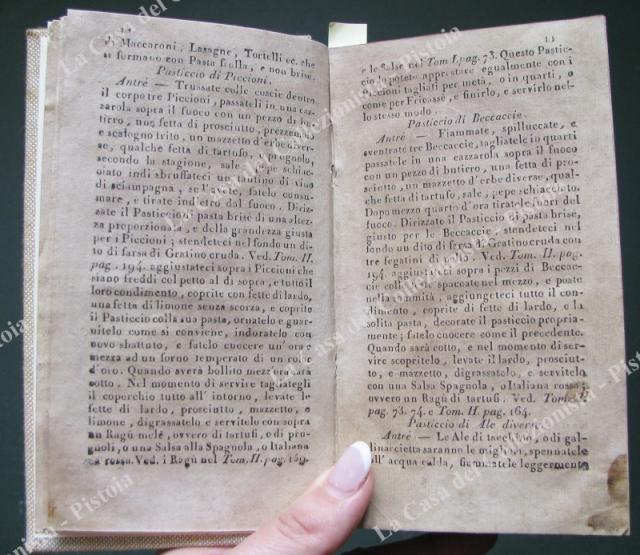 di Maccaroni, Lasagne, Tortelli ec. che
si formano con Pasta frolla, e non brisè.
Pasticcio di Piccioni.
Antrè — Trussate colle coscie dentro
il corpo tre Piccioni, passateli in una caz-
zarola sopra il fuoco con un pezzo di bu-
tirro, una fetta di prosciutto, prezzemolo
e scalogno trito, un mazzetto d'erbe diver-
se, qualche fetta di tartufo, o prugnolo,
secondo la stagione, sale, pepe schiac-
ciato indi sbruffateci un tantino di vino
di sciampagna, se l'avete, fatelo consu-
mare, e tirate indietro dal fuoco. Diriz-
zate il Pasticcio di pasta brisè di una altez-
za proporzionata, e della grandezza giusta
per i Piccioni; stendeteci nel fondo un di-
to di farsa di Gratino cruda. Ved. Tom. II.
pag. 194. aggiustateci sopra i Piccioni che
siano freddi col petto al di sopra, e tutto il
loro condimento, coprite con fette di lardo,
una fetta di limone senza scorza, e coprite
il Pasticcio colla sua pasta, ornatelo e guar-
nitelo come si conviene, indoratelo con
novo sbattuto, e fatelo cuocere un'ora e
mezza ad un forno temperato di un color
d'oro. Quando averà bollito mezz'ora sarà
cotto. Nel momento di servire tagliategli
il coperchio tutto all'intorno, levate le
fette di lardo, prosciutto, mazzetto, e
limone, digrassatelo e servitelo con sopra
un Ragù melè, ovvero di tartufi, o di pru-
gnoli, o una Salsa alla Spagnola, o Italiana
rossa. Ved. i Ragù nel Tom. II. pag. 159.
11
e le Salse nel Tom I. pag. 73. Questo Pastic-
cio lo potete apprestare egualmente con i
Piccioni tagliati per metà, o in quarti, o
come per Fricassè, e finirlo, e servirlo nel-
lo stesso modo.
Pasticcio di Beccaccie.
Antrè — Fiammate, spilluccate, e
sventrate tre Beccaccie, tagliatele in quarti
passatele in una cazzarola sopra il fuoco
con un pezzo di butirro, una fetta di pro-
sciutto, un mazzetto d'erbe diverse, qual-
che fetta di tartufo, sale, pepe schiacciato.
Dopo mezzo quarto d'ora tiratele fuori del
fuoco. Dirizzate il Pasticcio di pasta brisè,
giusto per le Beccaccie, stendeteci nel
fondo un dito di farsa di Gratino cruda con
tre fegatini di pollo. Ved. Tom. II. pag.
194. aggiustateci sopra i pezzi di Beccac-
cie colle teste spaccate nel mezzo, e poste
nella sommità, aggiungeteci tutto il con-
dimento, coprite di fette di lardo, e la
solita pasta, decorate il pasticcio propria-
mente; fatelo cuocere come il precedente.
Quando sarà cotto, e nel momento di ser-
vire scopritelo, levate il lardo, prosciut-
to, e mazzetto, digrassatelo, e servitelo
con una Salsa Spagnola, o Italiana rossa;
ovvero un Ragù di tartufi. Ved. Tom. I.
pag. 73. 74. e Tom. II. pag. 164.
Pasticcio di Ale diverse.
Antrè — Le Ale di tacchino, o di gal-
linaccietta saranno le migliori, spennatele
all'acqua calda, fiammatele leggermente
La Casa del Collezionista - Pistoia